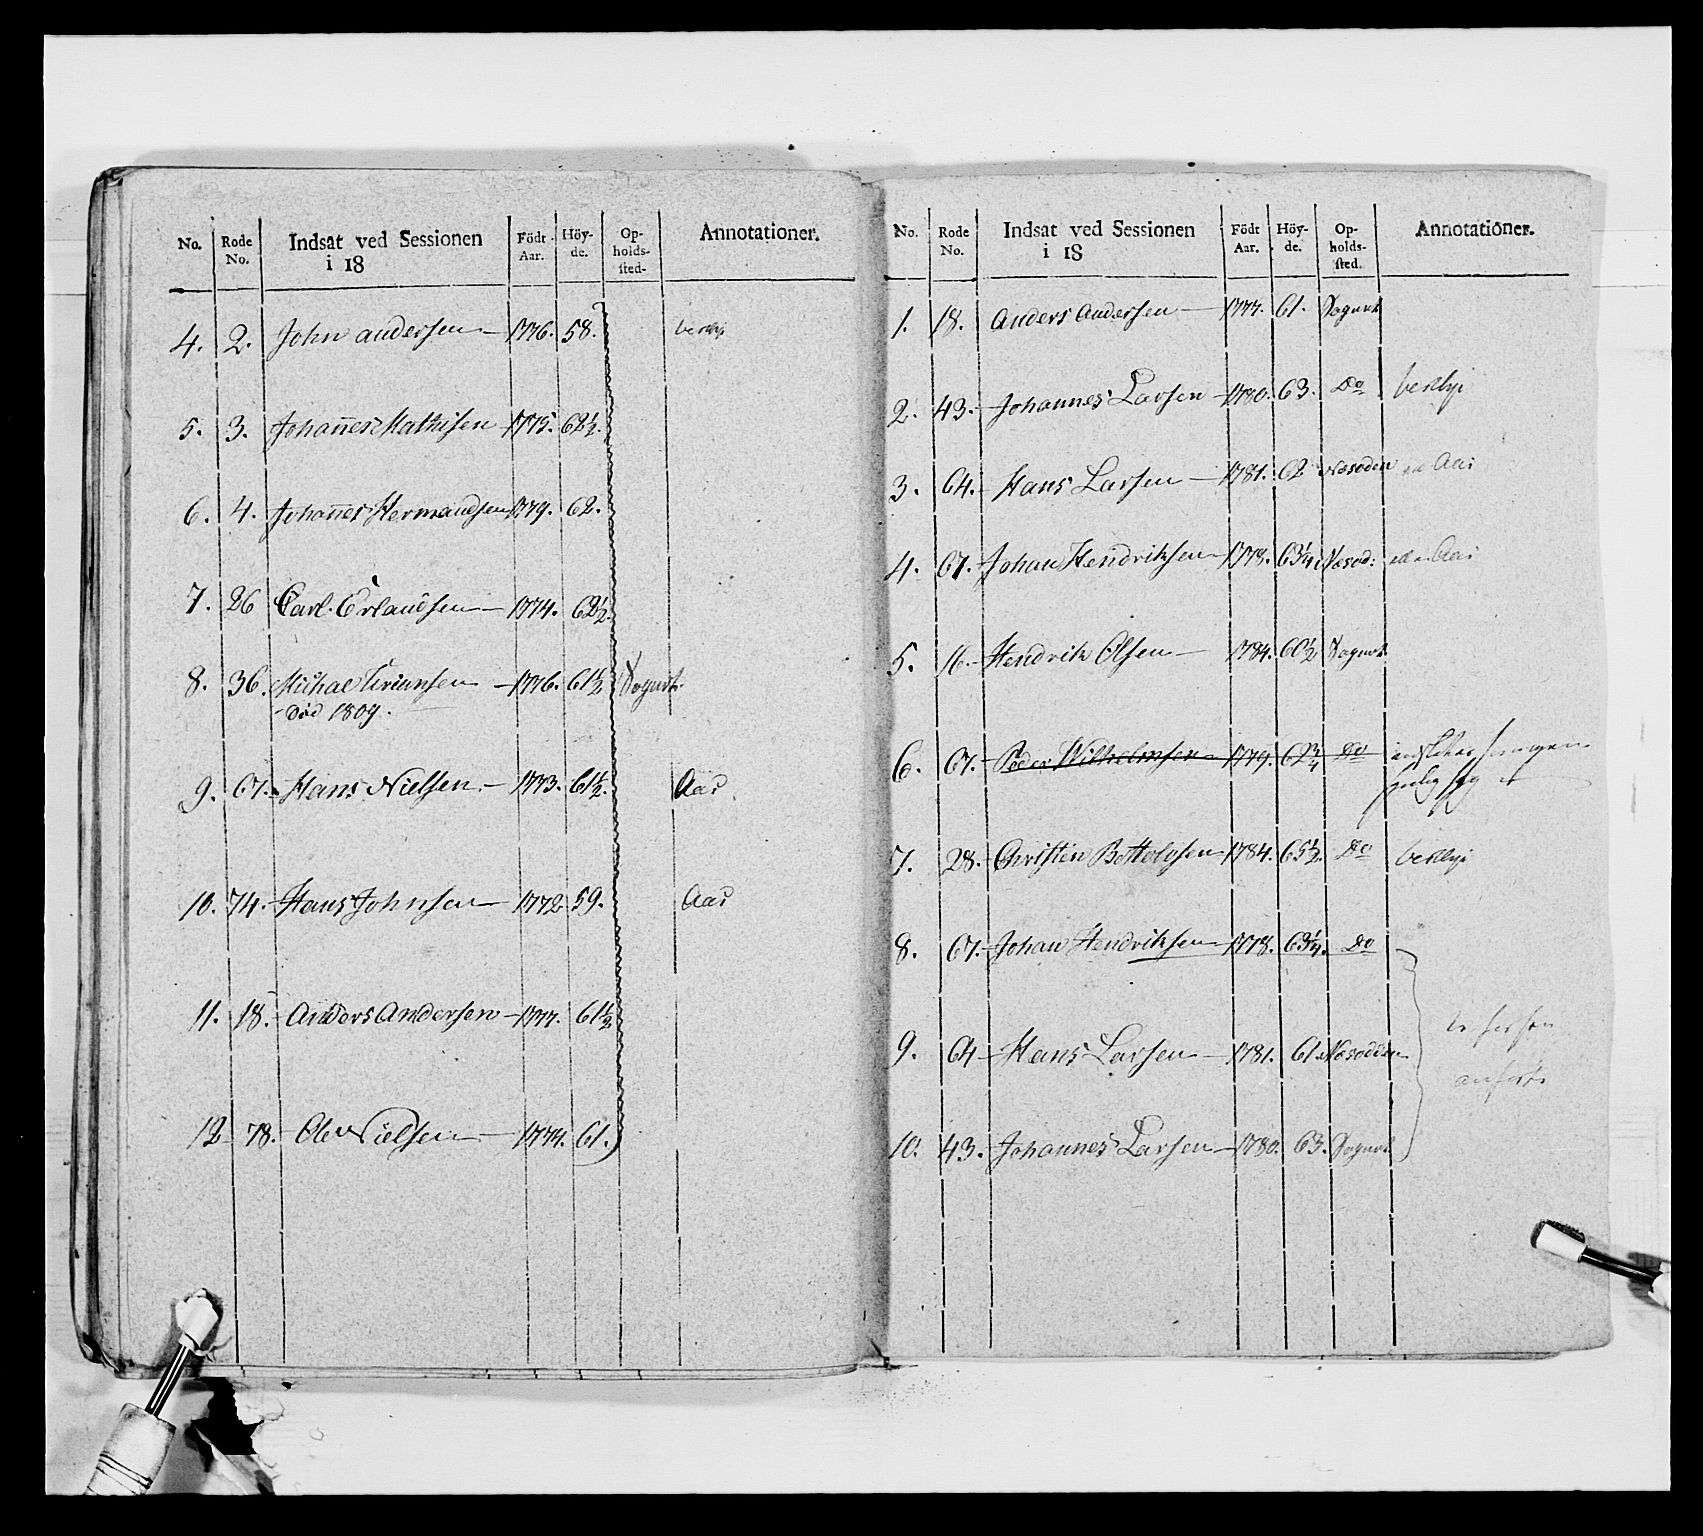 No. Rode No. Indsat ved Sessionen i 18 Födt Aar. Höyde. Opholdssted. Annotationer.
4. 2. John Andersen 1776. 58.
5. 3. Johannes Mathisen 1775. 62½.
6. 4. Johannes Hermandsen 1779. 62.
7. 26 Carl Erlandsen 1774. 62½.
8. 36. Michael 1776. 61½
død 1809.
9. 67. Hans Nielsen 1773. 61½. Aas
10. 74. Hans Johnsen 1772 59. Aas
11. 18. Anders Andersen 1777. 61½
12 78. Ole Nielsen 1774. 61.
No. Rode No. Indsat ved Sessionen i 18 Födt Aar. Höyde. Opholdssted. Annotationer.
1. 18. Anders Andersen 1777. 61.
2. 43. Johannes Larsen 63. Do
3. 64. Hans Larsen 1781. 62 Næsoden Aas
4. 67. Johan Hendriksen 1778. 63¼ Næsod: Aas
5. 16. Hendrik Olsen 1784. 60½
6. 67. Peder Wilhelmsen 1779. 62¾ Do
7. 28. Christen 1784. 65½. Do
8. 67. Johan Hendriksen 1778. 63¼. Do
9. 64 Hans Larsen 1781. 61. Næsodden
10. 43. Johannes Larsen 1780. 63.
anført